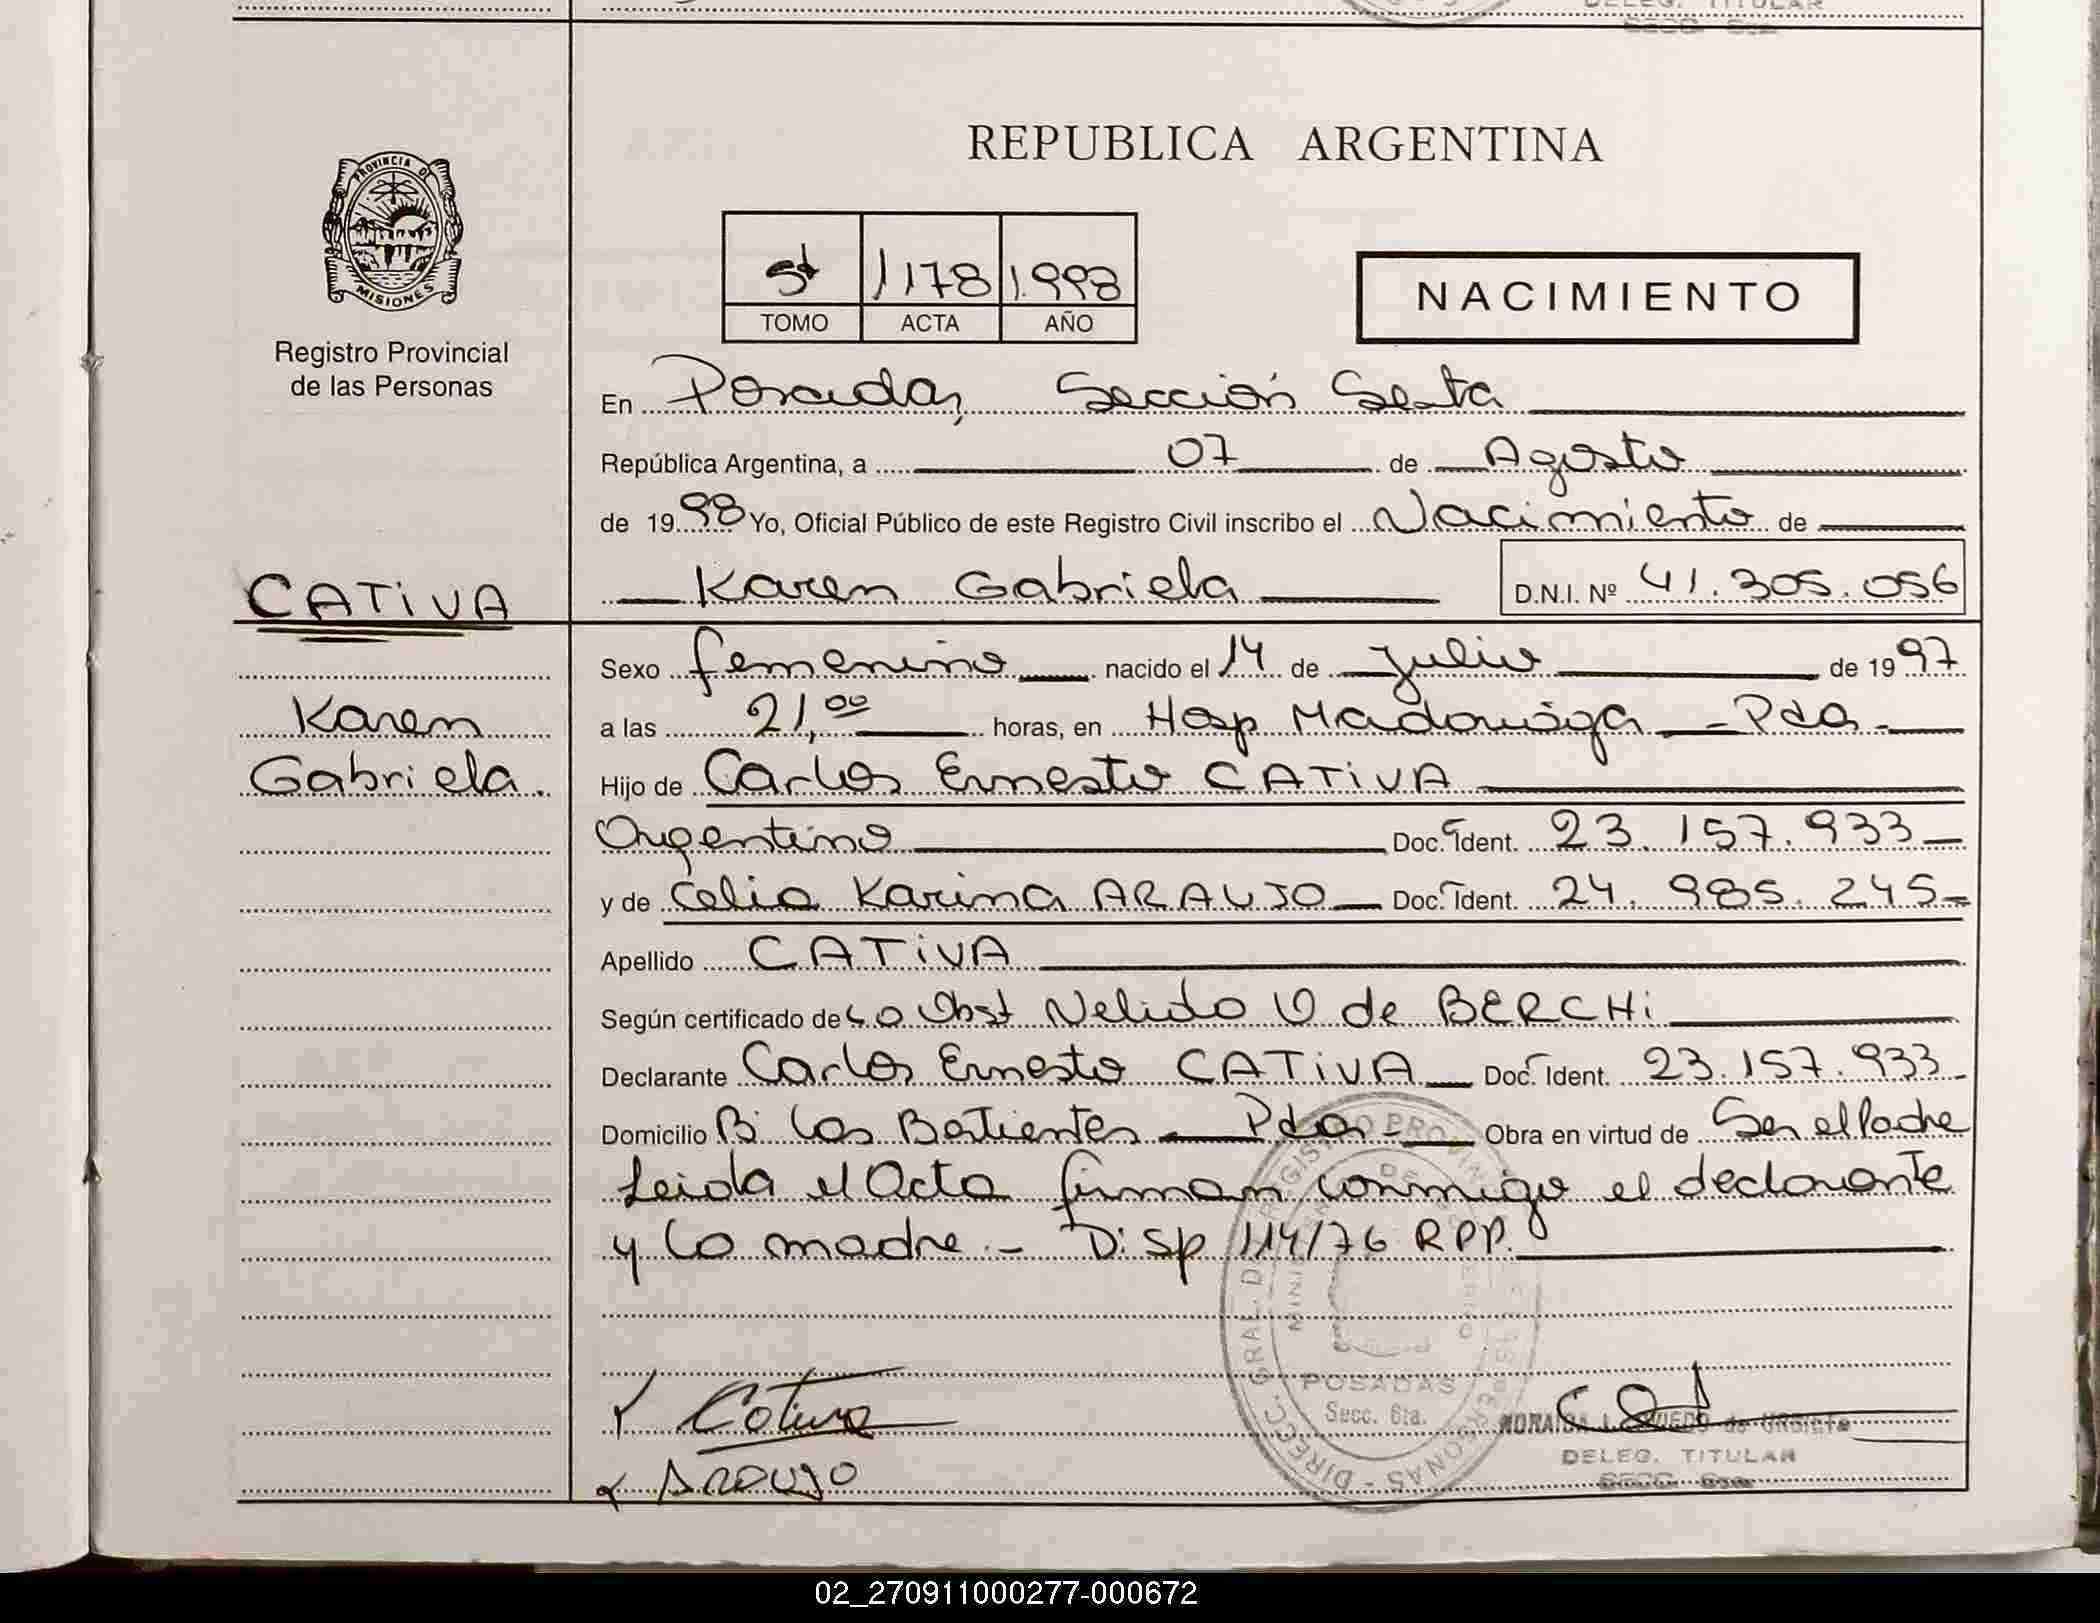 DELEG. TITULAR
REPUBLICA ARGENTINA
PROVINCIA DE
MISIONES
Registro Provincial
de las Personas
5t 1178 1.998
TOMO ACTA AÑO
NACIMIENTO
En Posadas, Sección Sexta
República Argentina, a 07 de Agosto
de 1998 Yo, Oficial Público de este Registro Civil inscribo el Nacimiento de
CATIVA
Karen Gabriela D.N.I. Nº 41.305.056
Sexo femenino nacido el 14 de Julio de 1997
Karen
a las 21,00 horas, en Hosp Madariaga - Pdas -
Gabriela.
Hijo de Carlos Ernesto CATIVA
Argentino Doc. Ident. 23.157.933
y de Celia Karina ARAUJO Doc. Ident. 24.985.245
Apellido CATIVA
Según certificado de La Obst Nelida V de BERCHI
Declarante Carlos Ernesto CATIVA Doc. Ident. 23.157.933
Domicilio Bº Los Batientes Pdas - Obra en virtud de Ser el Padre
Leida el Acta firman conmigo el declarante
y la madre. - Disp 114/76 RPP.
POSADAS
Secc. 6ta.
Cativa
DELEG. TITULAR
Araujo
02_270911000277-000672